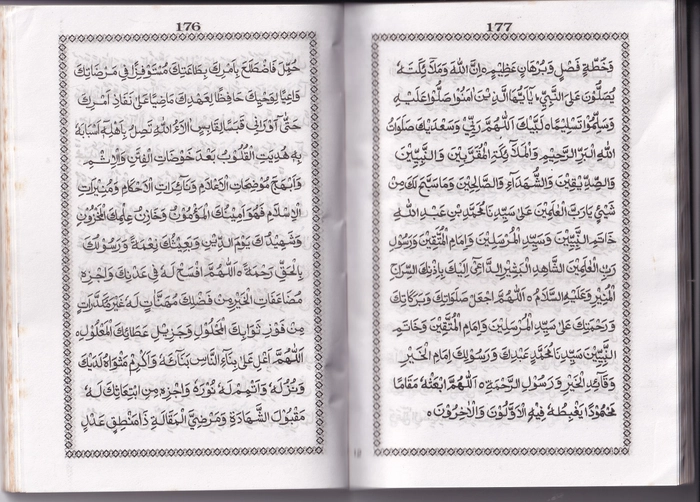 176
حُمِّلَ فَاضْطَلَعَ بِاَمْرِكَ بِطَاعَتِكَ مُسْتَوْفِزًا فِيْ مَرْضَاتِكَ
وَاعِيًا لِوَحْيِكَ حَافِظًا لِعَهْدِكَ مَاضِيًا عَلٰى نَفَاذِ اَمْرِكَ
حَتّٰى اَوْرٰى قَبَسًا لِقَابِسٍ اٰلَاءُ اللّٰهِ تَصِلُ بِاَهْلِهٖ اَسْبَابَهٗ
بِهٖ هُدِيَتِ الْقُلُوْبُ بَعْدَ خَوْضَاتِ الْفِتَنِ وَالْاِثْمِ
وَاَبْهَجَ مُوْضِحَاتِ الْاَعْلَامِ وَنَائِرَاتِ الْاَحْكَامِ وَمُنِيْرَاتِ
الْاِسْلَامِ فَهُوَ اَمِيْنُكَ الْمَأْمُوْنُ وَخَازِنُ عِلْمِكَ الْمَخْزُوْنِ
وَشَهِيْدُكَ يَوْمَ الدِّيْنِ وَبَعِيْثُكَ نِعْمَةً وَرَسُوْلُكَ
بِالْحَقِّ رَحْمَةً ○ اَللّٰهُمَّ افْسَحْ لَهٗ فِيْ عَدْنِكَ وَاجْزِهٖ
مُضَاعَفَاتِ الْخَيْرِ مِنْ فَضْلِكَ مُهَنَّاٰتٍ لَهٗ غَيْرَ مُكَدَّرَاتٍ
مِنْ فَوْزِ ثَوَابِكَ الْمَحْلُوْلِ وَجَزِيْلِ عَطَائِكَ الْمَعْلُوْلِ ○
اَللّٰهُمَّ اَعْلِ عَلٰى بِنَاءِ النَّاسِ بِنَائَهٗ وَاَكْرِمْ مَثْوَاهُ لَدَيْكَ
وَنُزُلَهٗ وَاَتْمِمْ لَهٗ نُوْرَهٗ وَاجْزِهٖ مِنِ ابْتِعَاثِكَ لَهٗ
مَقْبُوْلَ الشَّهَادَةِ وَمَرْضِيَّ الْمَقَالَةِ ذَامَنْطِقٍ عَدْلٍ
177
وَخُطَّةٍ فَصْلٍ وَبُرْهَانٍ عَظِيْمٍ ○ اِنَّ اللّٰهَ وَمَلٰٓئِكَتَهٗ
يُصَلُّوْنَ عَلَى النَّبِيِّ ؕ يٰٓاَيُّهَا الَّذِيْنَ اٰمَنُوْا صَلُّوْا عَلَيْهِ
وَسَلِّمُوْا تَسْلِيْمًا ○ لَبَّيْكَ اَللّٰهُمَّ رَبِّيْ وَسَعْدَيْكَ صَلَوَاتُ
اللّٰهِ الْبَرِّ الرَّحِيْمِ وَالْمَلٰٓئِكَةِ الْمُقَرَّبِيْنَ وَالنَّبِيِّيْنَ
وَالصِّدِّيْقِيْنَ وَالشُّهَدَاءِ وَالصَّالِحِيْنَ وَمَا سَبَّحَ لَكَ مِنْ
شَيْئٍ يَّارَبَّ الْعٰلَمِيْنَ عَلٰى سَيِّدِنَا مُحَمَّدِ بْنِ عَبْدِ اللّٰهِ
خَاتَمِ النَّبِيِّيْنَ وَسَيِّدِ الْمُرْسَلِيْنَ وَاِمَامِ الْمُتَّقِيْنَ وَرَسُوْلِ
رَبِّ الْعٰلَمِيْنَ الشَّاهِدِ الْبَشِيْرِ الدَّاعِيْ اِلَيْكَ بِاِذْنِكَ السِّرَاجِ
الْمُنِيْرِ وَعَلَيْهِ السَّلَامُ ○ اَللّٰهُمَّ اجْعَلْ صَلَوَاتِكَ وَبَرَكَاتِكَ
وَرَحْمَتَكَ عَلٰى سَيِّدِ الْمُرْسَلِيْنَ وَاِمَامِ الْمُتَّقِيْنَ وَخَاتَمِ
النَّبِيِّيْنَ سَيِّدِنَا مُحَمَّدٍ عَبْدِكَ وَرَسُوْلِكَ اِمَامِ الْخَيْرِ
وَقَائِدِ الْخَيْرِ وَرَسُوْلِ الرَّحْمَةِ ○ اَللّٰهُمَّ ابْعَثْهُ مَقَامًا
مَّحْمُوْدًا يَغْبِطُهٗ فِيْهِ الْاَوَّلُوْنَ وَالْاٰخِرُوْنَ ○